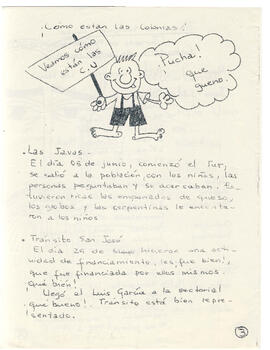 ¿Cómo están las colonias?
Veamos cómo
están las
C.U
¡Pucha!
que
gueno.
. Las Javas.-
El día 06 de junio, comenzó el Tur,
se salió a la población con los niños, las
personas preguntaban y se acercaban. Es-
tuvieron ricas las empanadas de queso,
los globos y las serpentinas le encanta-
ron a los niños.
. Tránsito San José
El día 26 de hicieron una acti-
vidad de financiamiento, les fue bien!,
que fue financiada por ellos mismos.
Qué bien!
Llegó el Luis García a la sectorial
que bueno!. Tránsito está bien repre-
sentado.